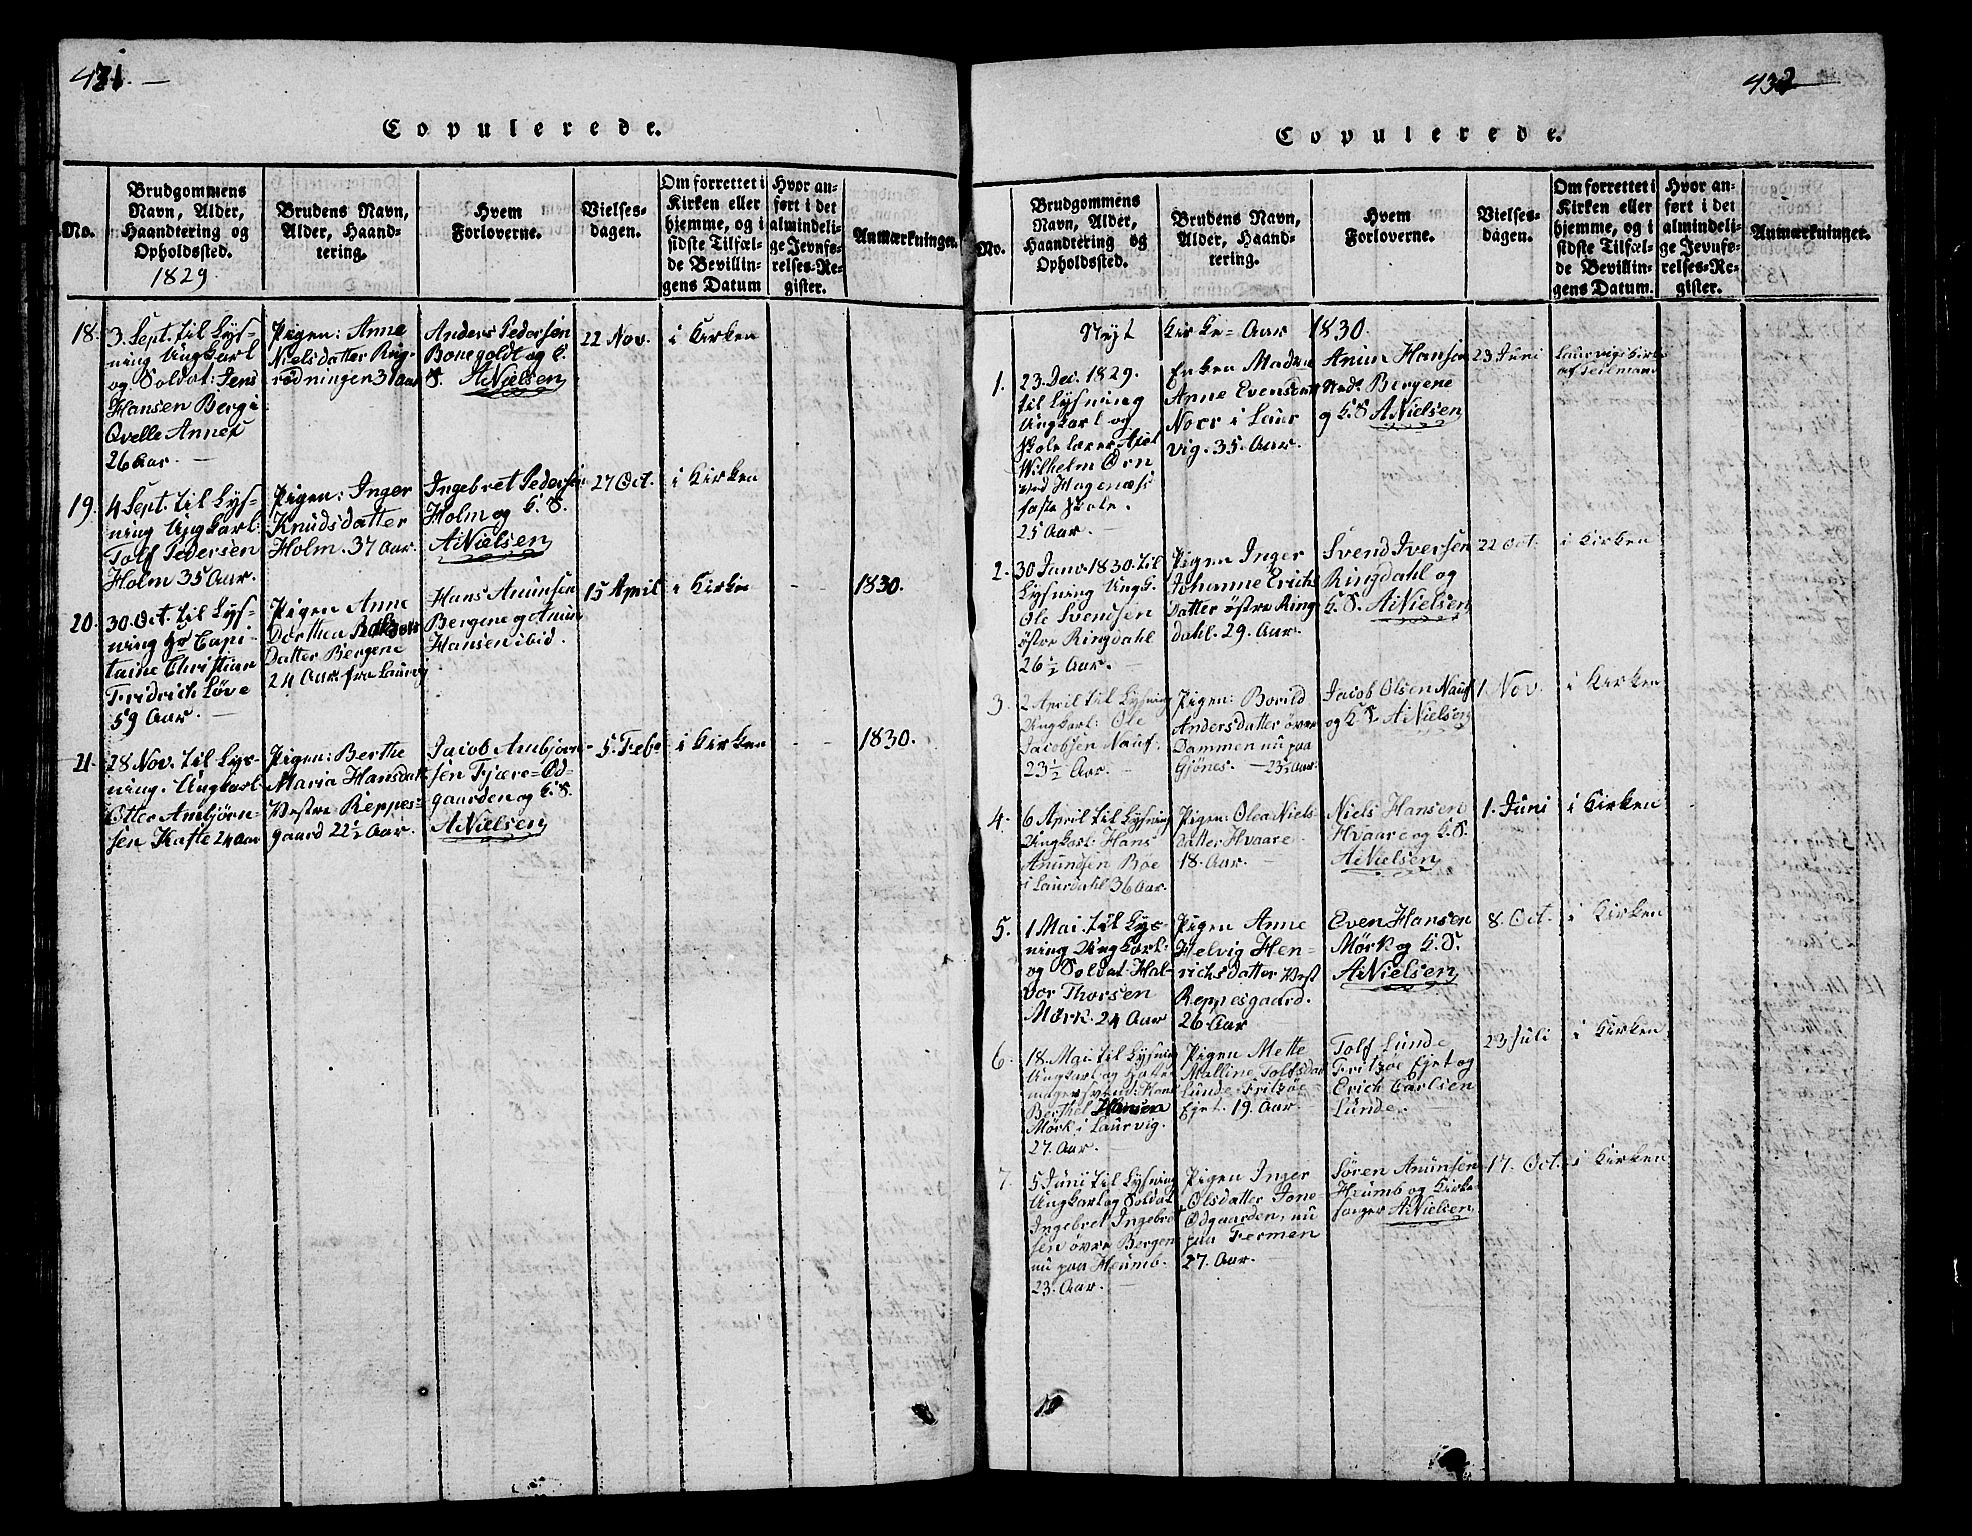 431.
Copulerede.
No.
Brudgommens
Navn, Alder,
Haandtering og
Opholdssted.
1829
Brudens Navn,
Alder, Haand-
tering.
Hvem
Forloverne.
Vielses-
dagen.
Om forrettet i
Kirken eller
hjemme, og i
sidste Tilfæl-
de Bevillin-
gens Datum
Hvor an-
ført i det
almindeli-
ge Jevnfø-
relses-Re-
gister.
Anmærkninger.
18.
3 Sept. til Lys-
ning Ungkarl
og Soldat: Jens
Hansen Berg i
Qvelle Annex
26 Aar.
Pigen: Anne
Nielsdatter Ring-
rødningen 31 Aar
Anders Pedersen
Bonegoldt og K.
S. A Nielsen
22 Nov.
i Kirken
19.
4 Sept. til Lys-
ning Ungkarl
Tolf Pedersen
Holm 35 Aar.
Pigen: Inger
Knudsdatter
Holm. 37 Aar.
Ingebret Pedersen
Holm og K. S.
A Nielsen
27 Oct.
i Kirken
20.
30 Oct. til Lys-
ning Hr Capi-
taine Christian
Fridrich Løve
59 Aar.
Pigen Anne
Dorthea
Datter Bergene
24 Aar. fra Laurvig
Hans Anunsen
Bergene og Anun
Hansen ibid.
15 April
i Kirke
1830.
21.
28 Nov. til Lys-
ning. Ungkarl
Otter Ambjørn-
sen Kafte 24 Aar
Pigen: Berthe
Maria Hansdatt
Vestre Reppes-
gaard 22½ Aar.
Jacob Ambjørn-
sen Fjære=Ød-
gaarden og K. S.
A Nielsen
5 Feb.
i Kirken
1830.
432
Copulerede.
No.
Brudgommens
Navn, Alder,
Haandtering og
Opholdssted.
Brudens Navn,
Alder, Haand-
tering.
Hvem
Forloverne.
Vielses-
dagen.
Om forrettet i
Kirken eller
hjemme, og i
sidste Tilfæl-
de Bevillin-
gens Datum.
Hvor an-
ført i det
almindeli-
ge Jevnfø-
relses-Re-
gister.
Anmærkninger.
Nyt Kirke=Aar 1830.
1.
23. Dec. 1829.
til Lysning
Ungkarl og
Skolelærer Axel
Wilhelm Ørn
ved Hagenæs
faste Skole.
25 Aar.
Enken Madme
Anne Evensdatt
Noer i Laur
vig. 35. Aar.
Anun Hansen
Nedr Bergene
og K. S. A Nielsen
23 Juni
Laurvigs Kirke
2.
30 Janv. 1830. til
Lysning Ungk.
Ole Svendsen
østre Ringdahl
26½ Aar.
Pigen Inger
Johanne Erichs
Datter østre Ring
dahl. 29. Aar.
Svend Iversen
Ringdahl og
K. S. A Nielsen
22 Oct.
i Kirken
3.
2 April til Lysning
Ungkarl: Ole
Jacobsen Nauf.
23½ Aar.
Pigen: Borild
Andersdatter øvre
Dammen nu paa
Gjønes. 23½ Aar.
Jacob Olsen Nauf
og K. S. A Nielsen
1 Nov.
i Kirken
4.
6 April til Lysning
Ungkarl: Hans
Anunsen Boe
i Laurdahl 36 Aar
Pigen: Olea Niels
datter Hvaare
18. Aar.
Niels Hansen
Hvaare og K. S.
A Nielsen
1. Juni
i Kirken
5.
1 Mai. til Lys-
ning Ungkarl
og Soldat Hal-
vor Thorsen
Mørk. 24 Aar
Pigen Anne
Helvig Hen-
richsdatter Vest
Reppesgaard.
26 Aar
Even Hansen
Mørk og K. S.
A Nielsen
8. Oct.
i Kirken
6.
18. Mai til Lysning
Ungkarl og Hatte
magersvend: Hans
Berthel Hansen
Mørk i Laurvig.
27. Aar.
Pigen Mette
Malline Tolfsdat
Lunde Fritzøe-
Ejet. 19. Aar
Tolf Lunde
Fritzøe Ejet og
Erich Carlsen
Lunde.
23 Juli
i Kirken
7.
5 Juni til Lysning
Ungkarl og Soldat
Ingebret Ingebret
sen øvre Bergen
nu paa Heumb.
23. Aar.
Pigen Inger
Olsdatter Jone-
Ødgaarden, nu
paa Fermen
27. Aar.
Søren Anunsen
Heumb og Kirke
sanger A Nielsen
17. Oct.
i Kirken